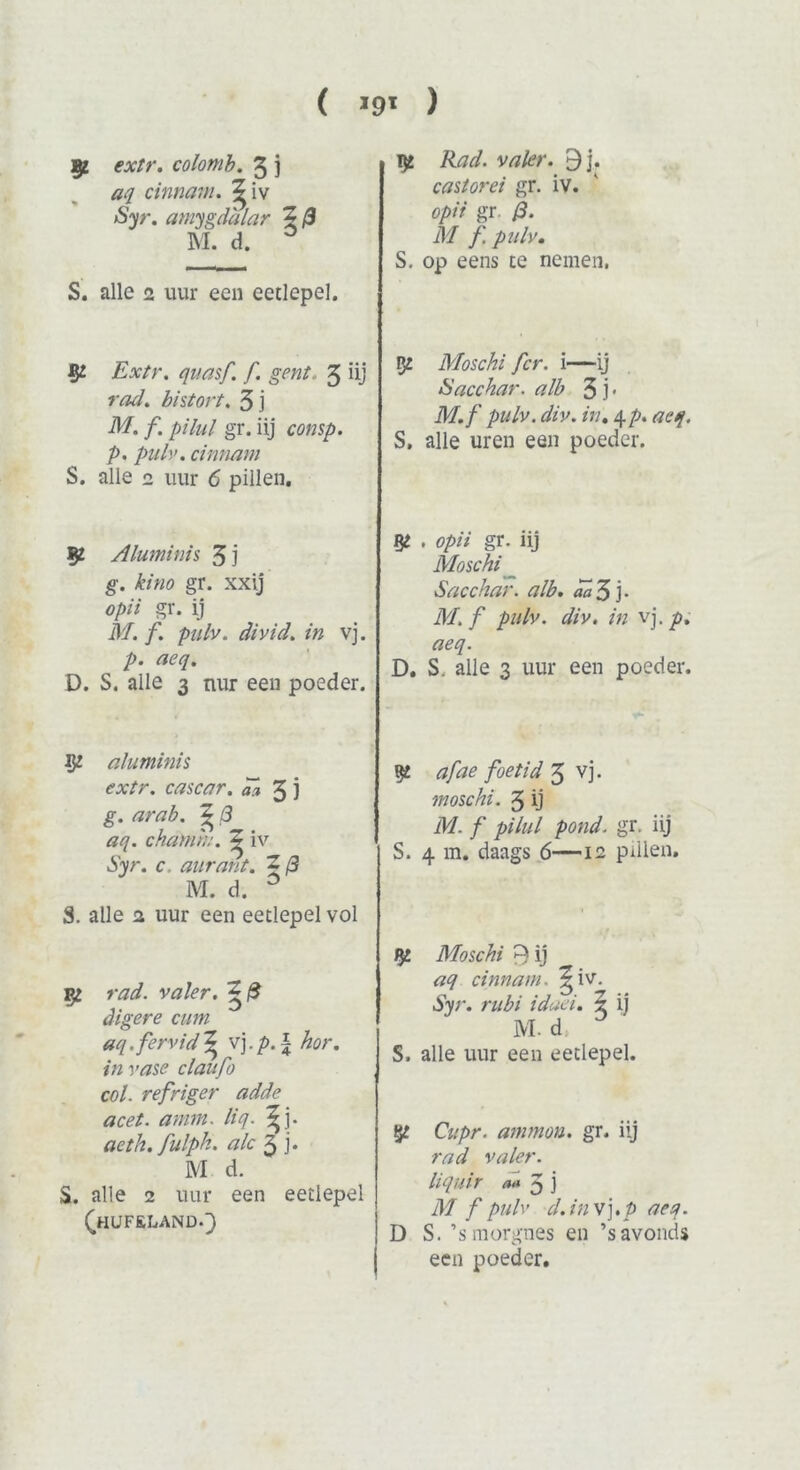 ( 191 )
℞ extr. colomb. ʒ j
aq cinnam. ℥ iv
Syr. amygdalar ℥ β
M. d.
S. alle 2 uur een eetlepel.
℞ Extr. quasf. f. gent. ʒ iij
rad. bistort. ʒ j
M. f. pilul gr. iij consp.
p. pulv. cinnam
S. alle 2 uur 6 pillen.
℞ Aluminis ʒ j
g. kino gr. xxij
opii gr. ij
M. f. pulv. divid. in vj.
p. aeq.
D. S. alle 3 nur een poeder.
℞ aluminis
extr. cascar. āā ʒ j
g. arab. ℥ β
aq. chamm. ℥ iv
Syr. c. aurant. ℥ β
M. d.
S. alle 2 uur een eetlepel vol
℞ rad. valer. ℥ β
digere cum
aq. fervid ℥ vj. p. ¼ hor.
in vase claufo
col. refriger adde
acet. amm. liq. ℥ j.
aeth. fulph. alc ʒ j.
M d.
S. alle 2 uur een eetlepel
(HUFELAND.)
℞ Rad. valer. ℈ j.
castorei gr. iv.
opii gr. β.
M f. pulv.
S. op eens te nemen.
℞ Moschi fcr. i—ij
Sacchar. alb ʒ j.
M. f pulv. div. in. 4 p. aeq.
S. alle uren een poeder.
℞ . opii gr. iij
Moschi
Sacchar. alb. āā ʒ j.
M. f pulv. div. in vj. p.
aeq.
D. S. alle 3 uur een poeder.
℞ afae foetid ʒ vj.
moschi. ʒ ij
M. f pilul pond. gr. iij
S. 4 m. daags 6—12 pillen.
℞ Moschi ℈ ij
aq cinnam. ℥ iv.
Syr. rubi idaei. ℥ ij
M. d.
S. alle uur een eetlepel.
℞ Cupr. ammon. gr. iij
rad valer.
liquir āā ʒ j
M f pulv d. in vj. p aeq.
D S. 's morgnes en 's avonds
een poeder.